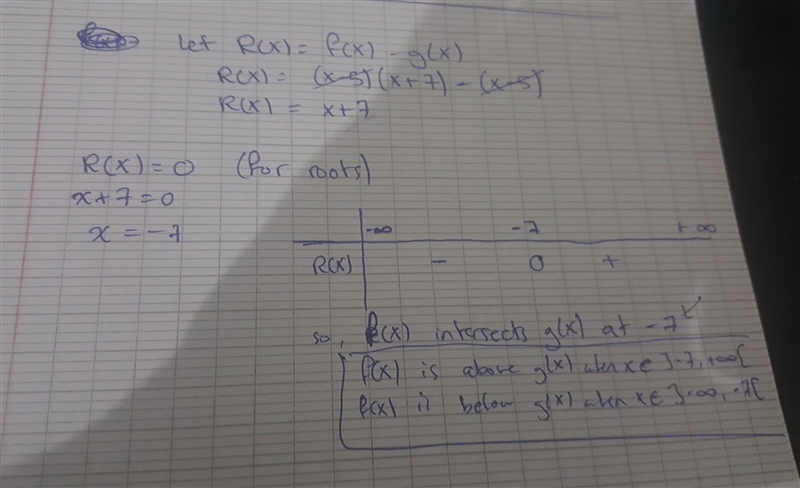 Let R(x) = f(x) - g(x)
R(x) = (x-5)(x+7) - (x-5)
R(x) = x+7
R(x) = 0 (for roots)
x+7=0
x = -7
-∞ -7 +∞
R(x) - 0 +
so, f(x) intersects g(x) at -7
f(x) is above g(x) when x∈ ]-7, +∞[
f(x) is below g(x) when x∈ ]-∞, -7[